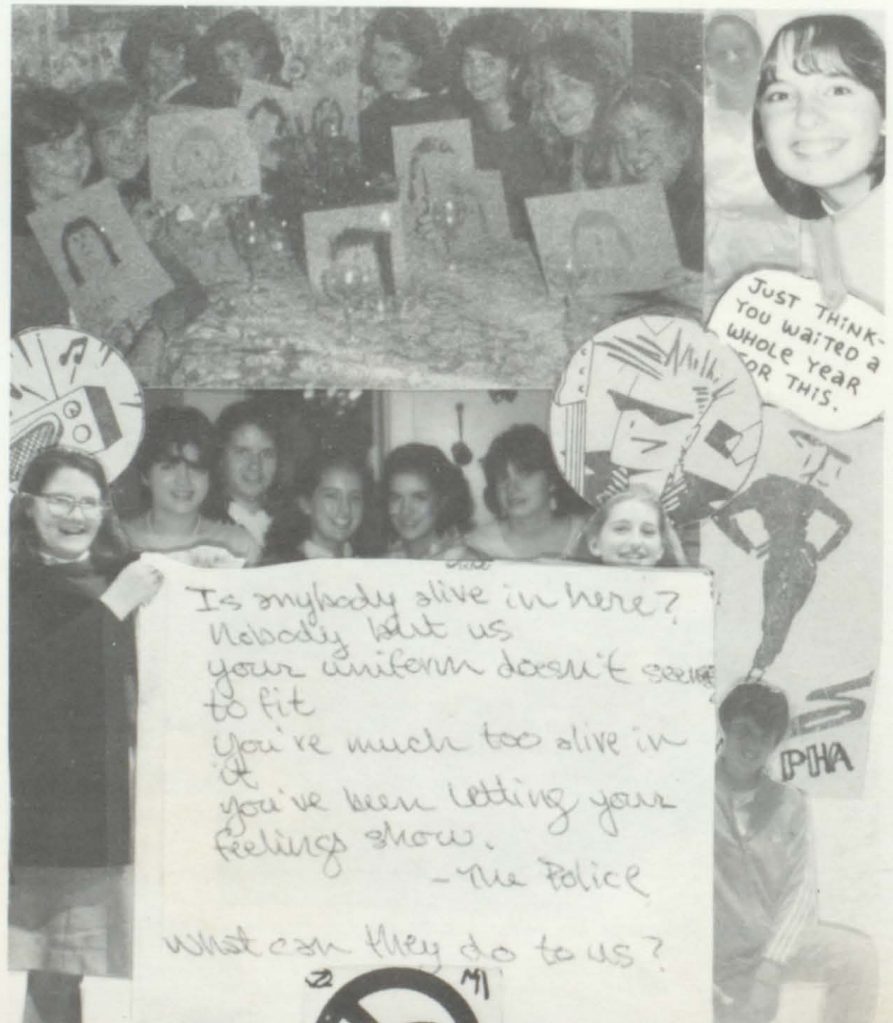 JUST THINK-
YOU WAITED A
WHOLE YEAR
FOR THIS.
PHA
Is anybody alive in here?
Nobody but us
your uniform doesn't seem
to fit
you're much too alive in
it
you've been letting your
feelings show.
- The Police
What can they do to us?